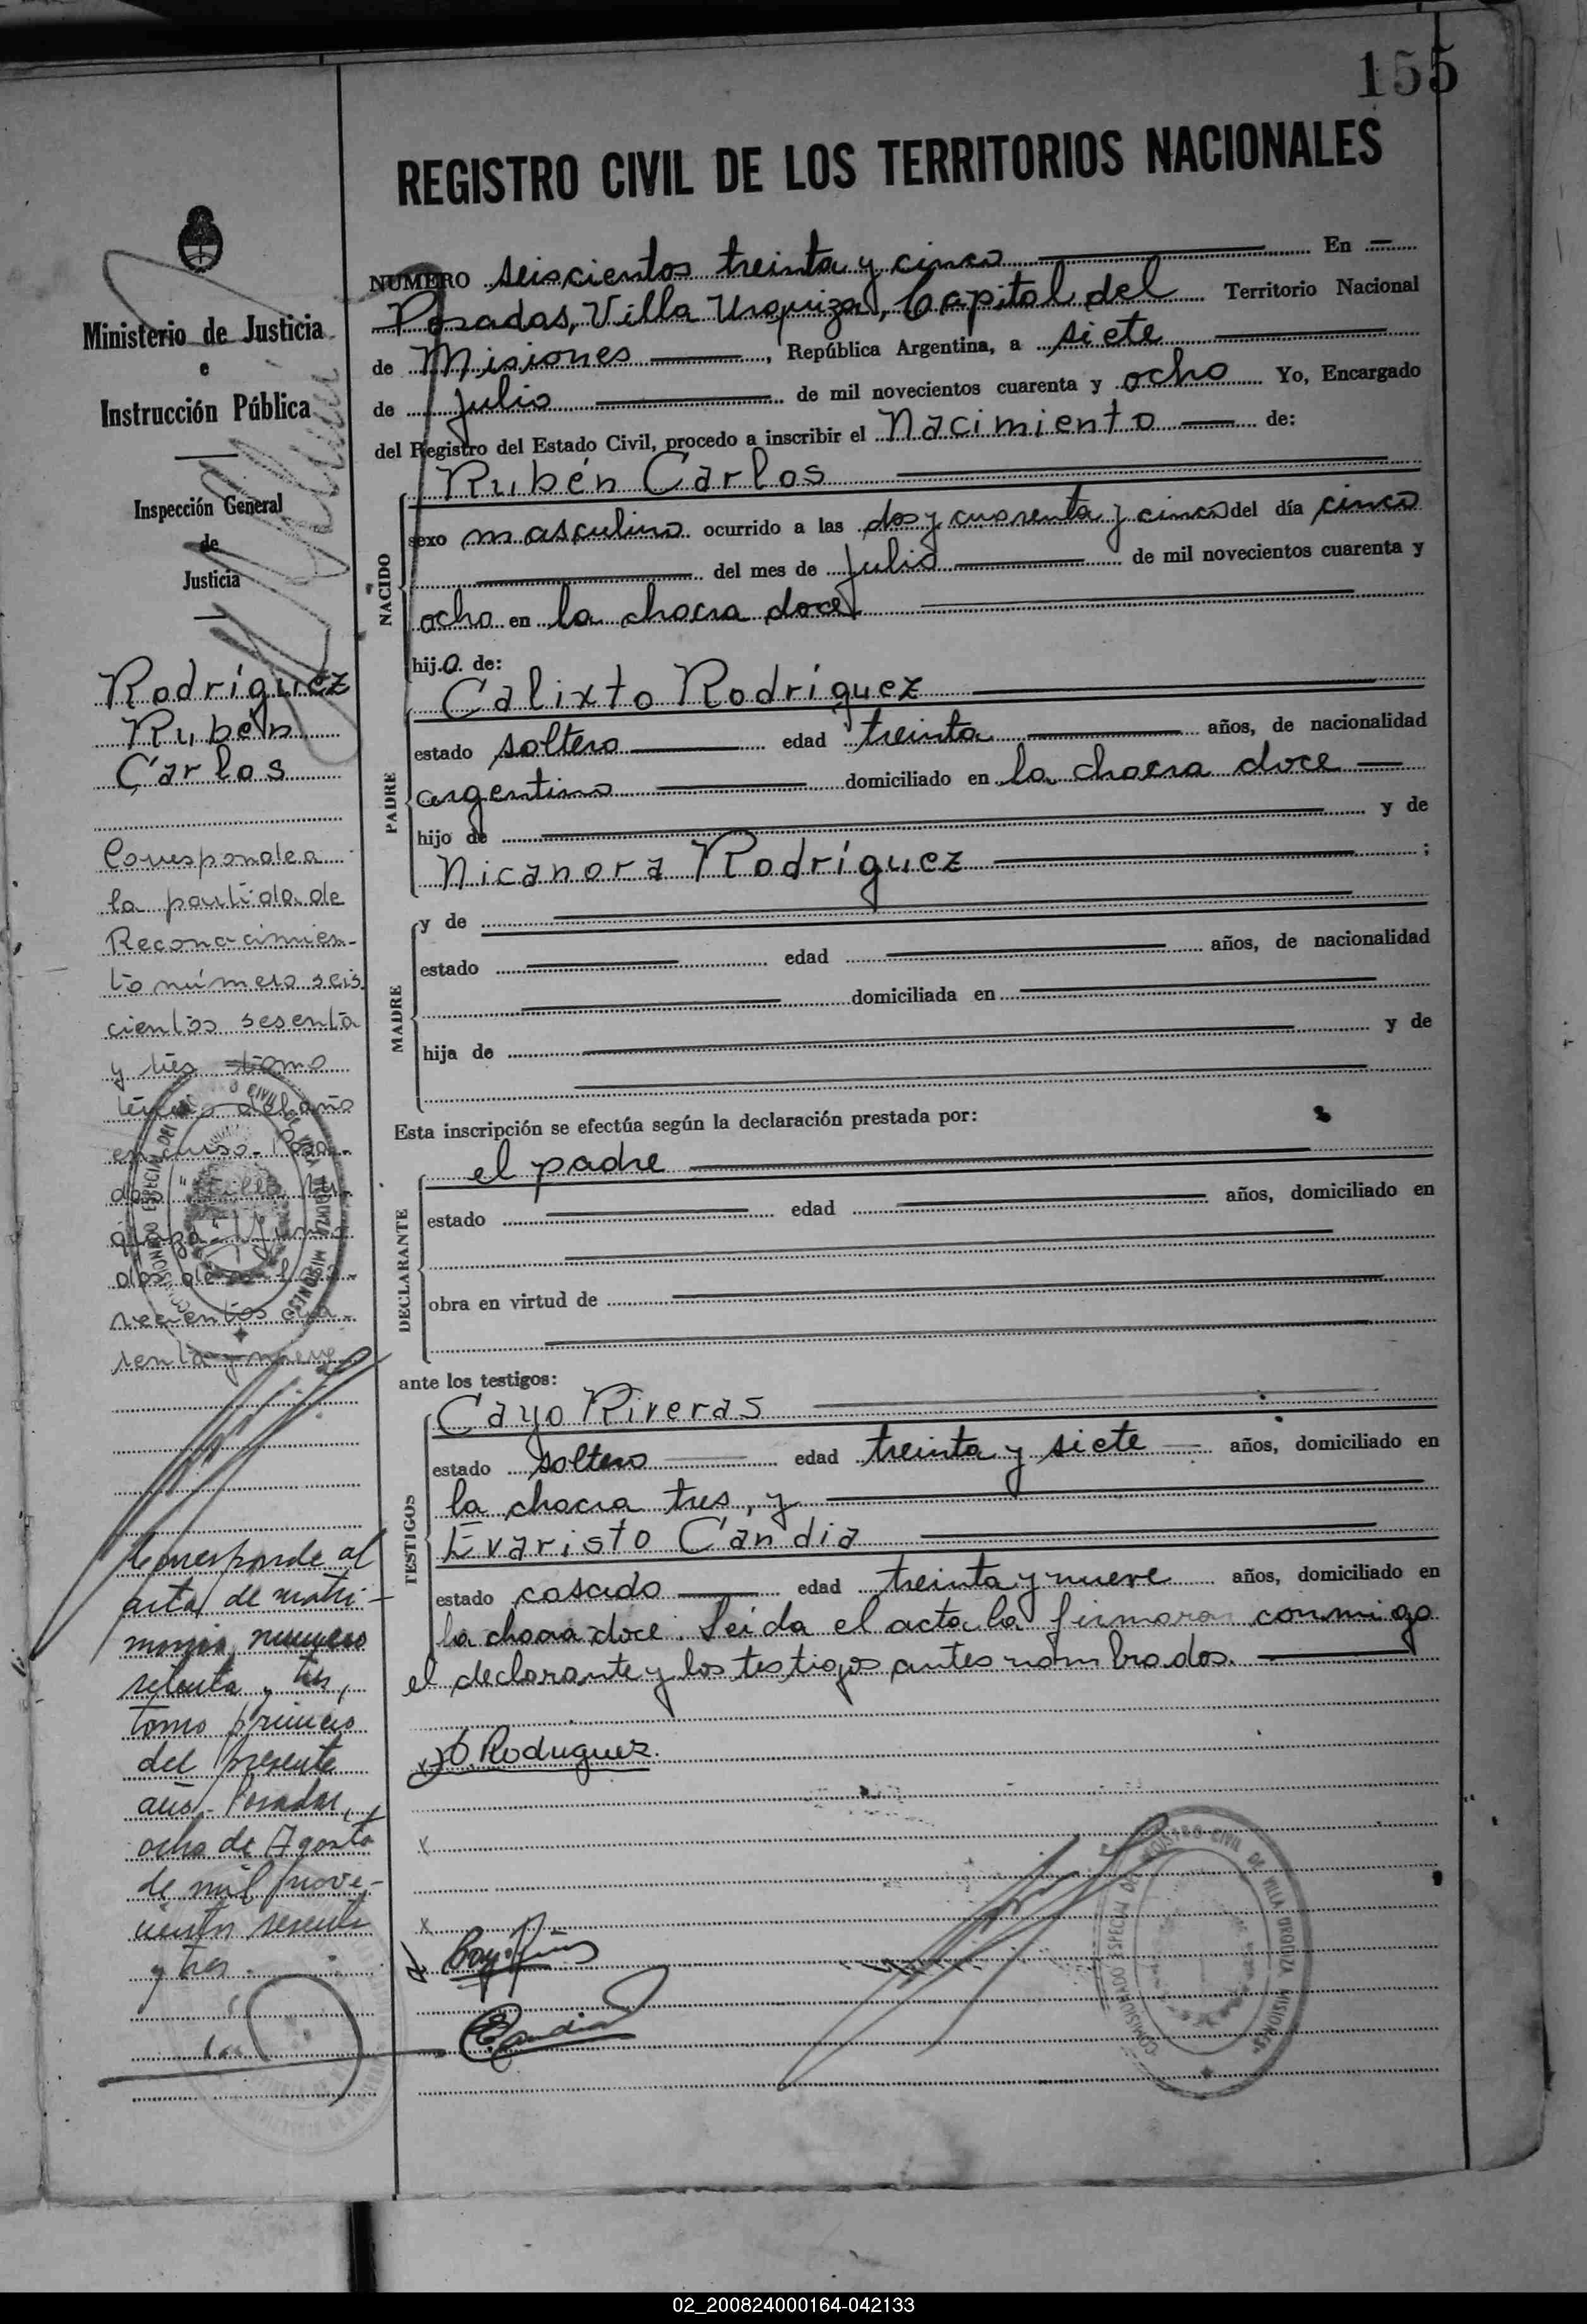 155
REGISTRO CIVIL DE LOS TERRITORIOS NACIONALES
Ministerio de Justicia
e
Instrucción Pública
Inspección General
de
Justicia
Rodríguez
Rubén
Carlos
Corresponde a
la partida de
Reconocimien-
to número seis
cientos sesenta
y tres tomo
del año
en curso. Posa-
das "Villa Ur-
quiza"
dos de
vecientos cua-
renta y nueve
Corresponde al
acta de matri-
monio numero
setenta y tres,
tomo primero
del presente
año. Posadas,
ocho de Agosto
de mil nove-
cientos sesenta
y tres.
NUMERO seiscientos treinta y cinco En
Posadas, Villa Urquiza, Capital del Territorio Nacional
de Misiones, República Argentina, a siete
de julio de mil novecientos cuarenta y ocho Yo, Encargado
del Registro del Estado Civil, procedo a inscribir el Nacimiento de:
Rubén Carlos
NACIDO
sexo masculino ocurrido a las dos y cuarenta y cinco del día cinco
del mes de julio de mil novecientos cuarenta y
ocho en la chacra doce
hijo de:
PADRE
Calixto Rodríguez
estado soltero edad treinta años, de nacionalidad
argentino domiciliado en la chacra doce
hijo de y de
Nicanora Rodríguez ;
MADRE
y de
estado edad años, de nacionalidad
domiciliada en
hija de y de
Esta inscripción se efectúa según la declaración prestada por:
DECLARANTE
el padre
estado edad años, domiciliado en
obra en virtud de
ante los testigos:
TESTIGOS
Cayo Riveras
estado soltero edad treinta y siete años, domiciliado en
la chacra tres, y
Evaristo Candia
estado casado edad treinta y nueve años, domiciliado en
la chacra doce. Leída el acta la firmaron conmigo
el declarante y los testigos antes nombrados.
Rodriguez.
x
x
E Candia
COMISIONADO ESPECIAL DEL REGISTRO CIVIL DE VILLA URQUIZA MISIONES
02_200824000164-042133